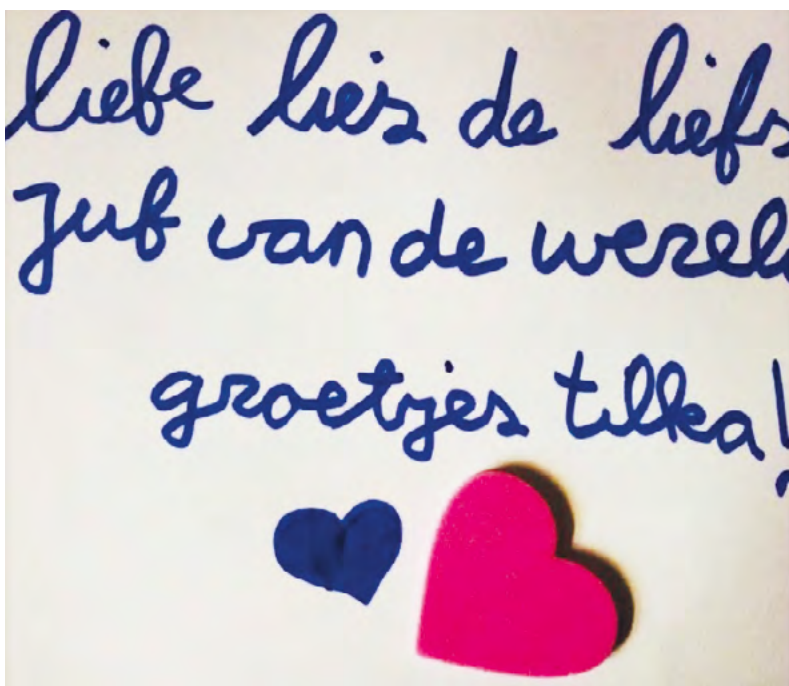 liebe lies de liefs
Juf van de wereld
groetjes tilka!